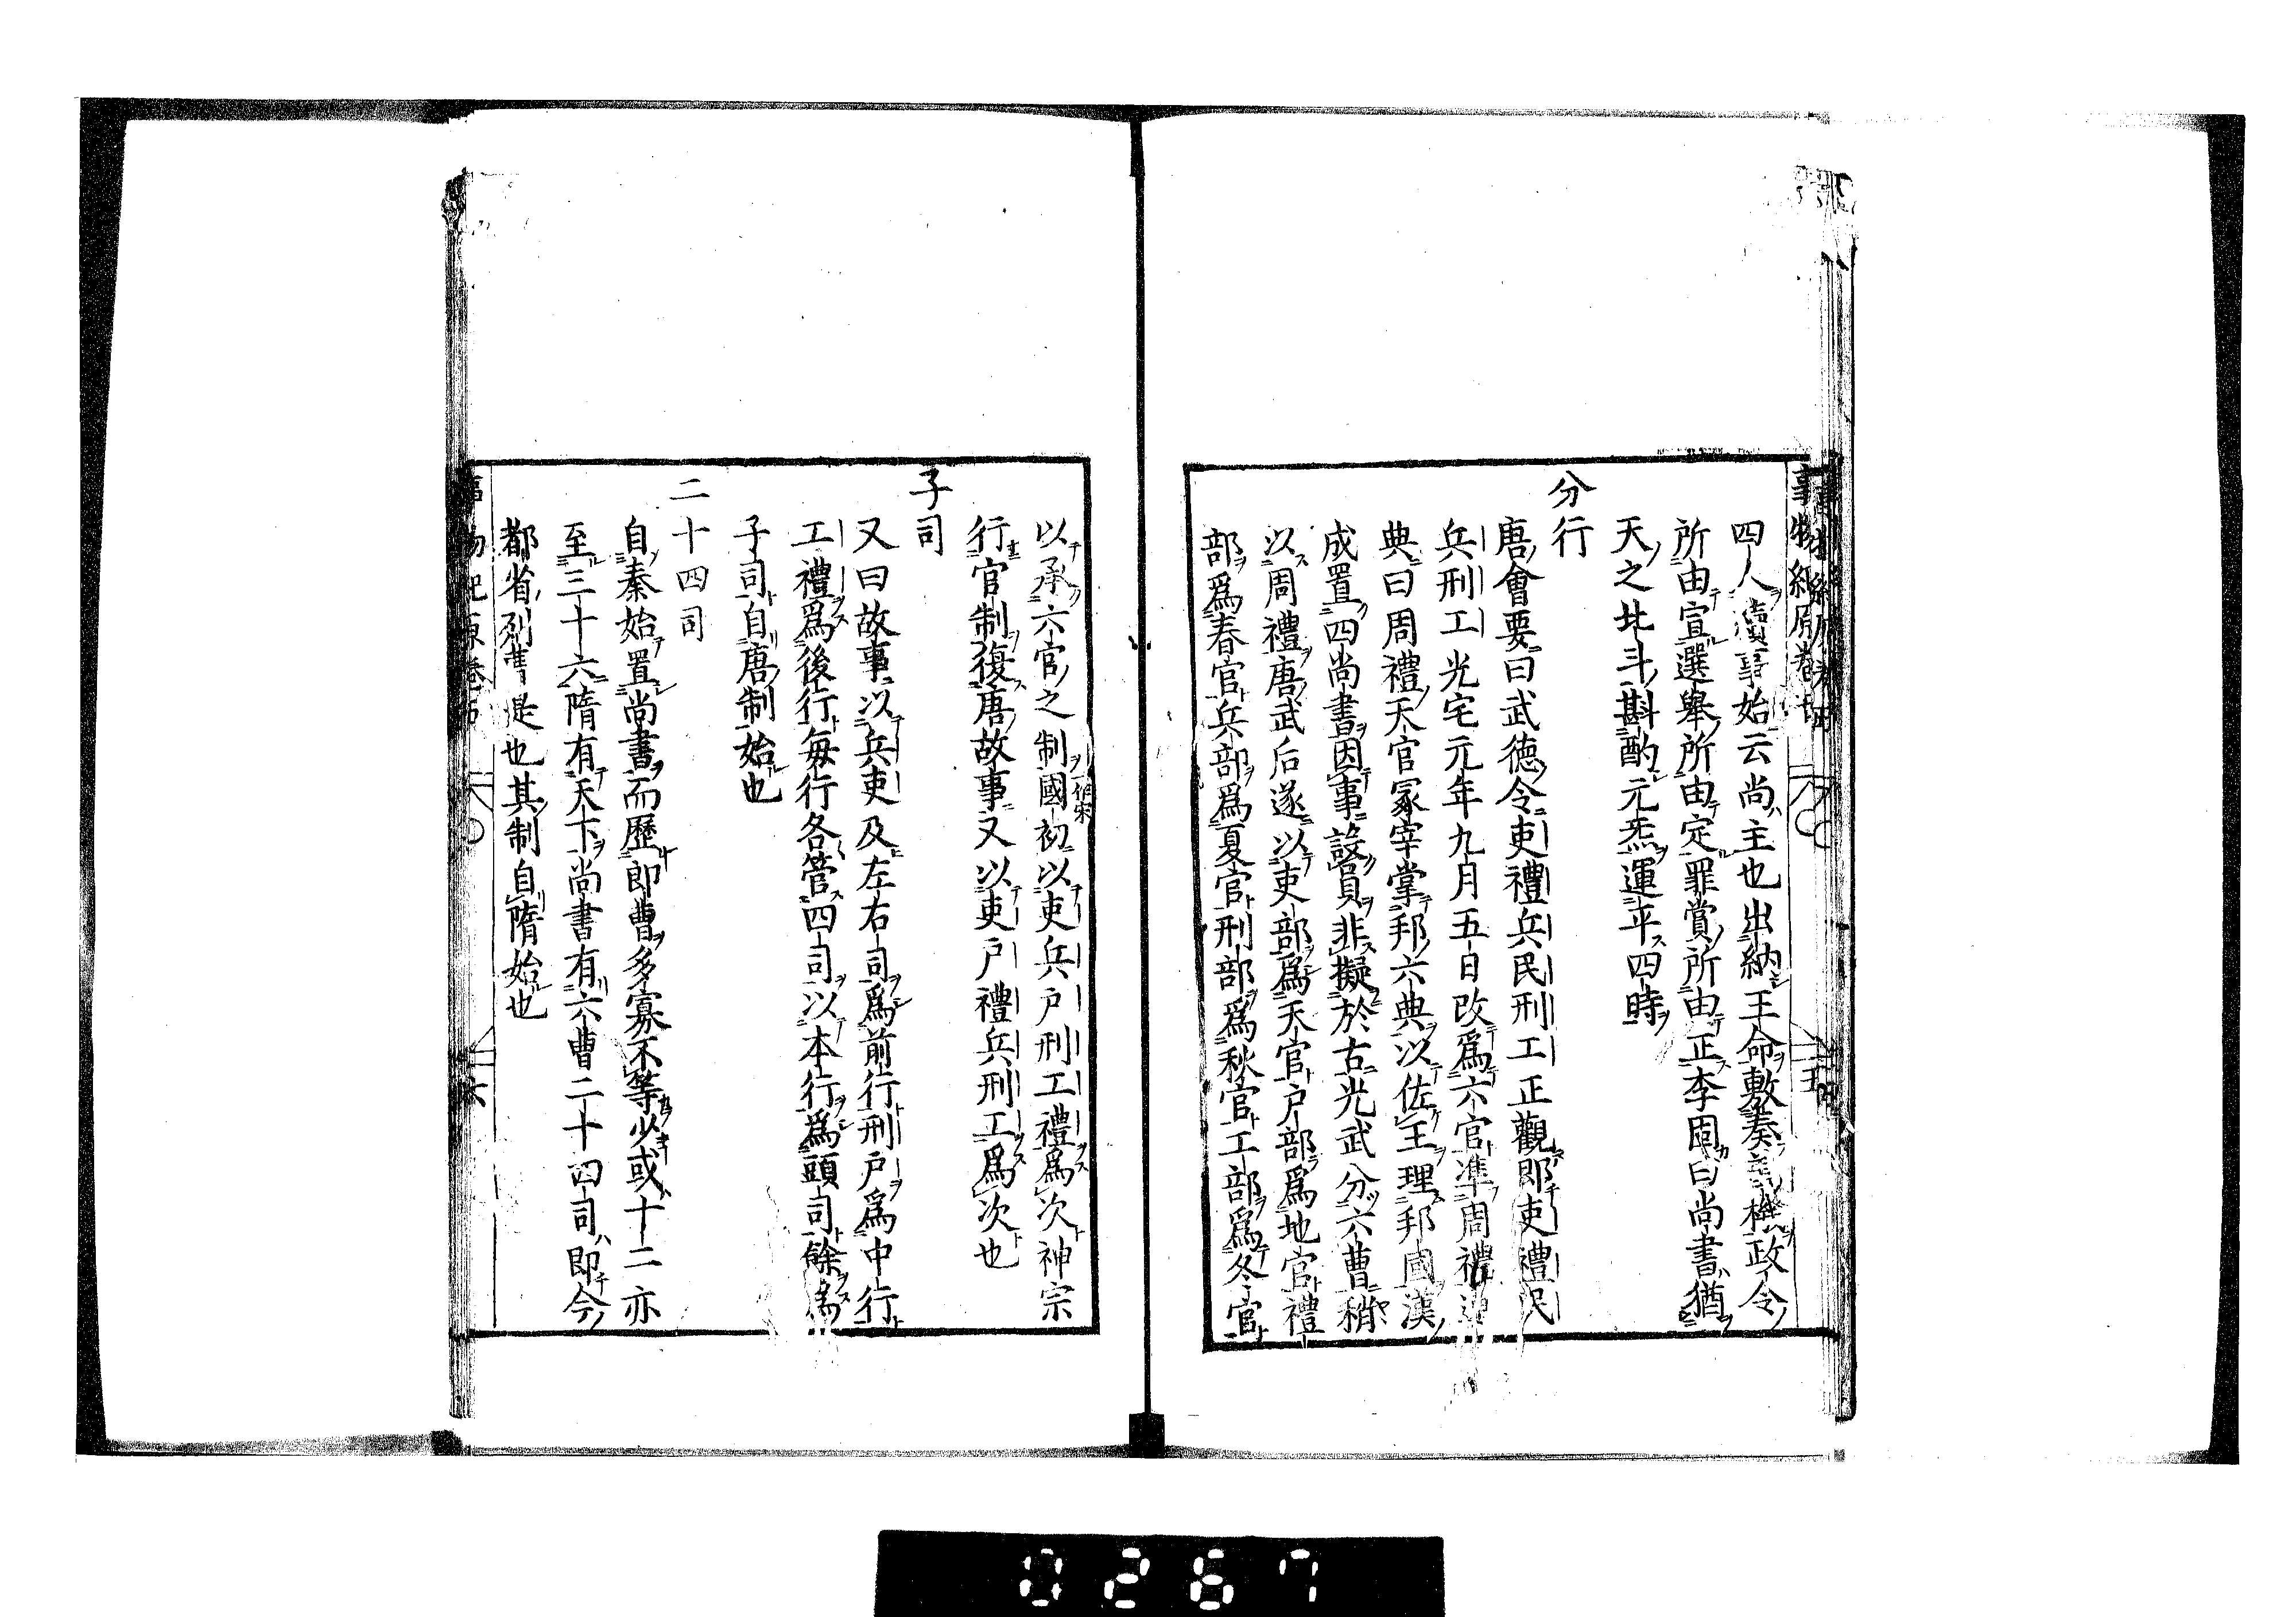 四人續事始云尚主也出納王命敷奏萬機政令
所由宣選舉所由定罪賞所由正李固曰尚書猶
天之北斗斟酌元炁運平四時
分行
唐會要曰武德令吏禮兵民刑工正觀即吏禮民
兵刑工光宅元年九月五日改爲六官準周禮
典曰周禮天官冢宰掌邦六典以佐王理邦國漢
成置四尚書因事設員非擬於古光武分六曹稍
以周禮唐武后遂以吏部爲天官户部爲地官禮
部爲春官兵部爲夏官刑部爲秋官工部爲冬官
以承六官之制國初以吏兵户刑工禮爲次神宗
一作宋
行官制復唐故事又以吏户禮兵刑工爲次也
子司
又曰故事以兵吏及左右司爲前行刑户爲中行
工禮爲後行每行各管四司以本行爲頭司餘爲
子司自唐制始也
二十四司
自秦始置尚書而歷即曹多寡不等少或十二亦
至三十六隋有天下尚書有六曹二十四司即今
都省列曹是也其制自隋始也
事物紀原卷五
六
0267